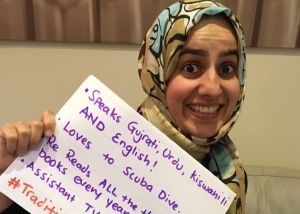 • Speaks Gujrati, Urdu, Kiswahili
AND English!
• Loves to Scuba Dive
Re Reads ALL the
books every year
• Assistant
#Traditi